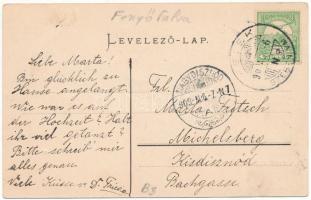 Fenyőfalva
LEVELEZŐ-LAP.
Liebe Marta!
Bin glücklich zu
Hause angelangt.
Wie war es auf
der Hochzeit? Habt
ihr viel getanzt?
Bitte schreib' mir
alles genau.
Viele Küsse v.
Frl.
Marta
Michelsberg
Kisdisznód
Bachgasse
NAGYDISZNÓD